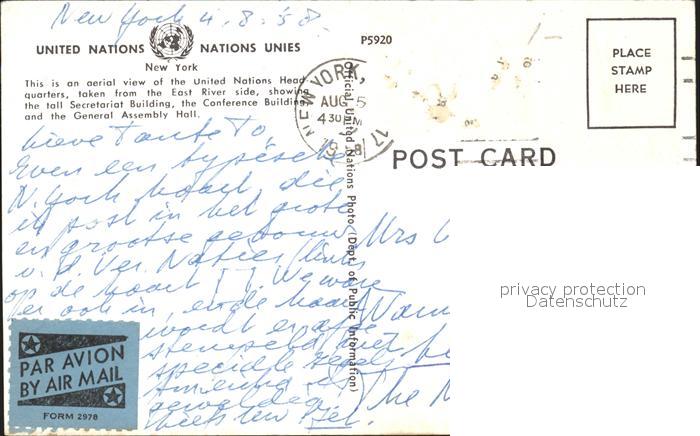 New York 4.8.58.
UNITED NATIONS NATIONS UNIES
New York
This is an aerial view of the United Nations Head-
quarters, taken from the East River side, showing
the tall Secretariat Building, the Conference Building
and the General Assembly Hall.
P5920
NEW YORK,
AUG 5
4 30 PM
17
PLACE
STAMP
HERE
POST CARD
Official United Nations Photo (Dept. of Public Information)
Lieve Tante To,
Even een typische
N. York kaart, die
ik post in het grote
en grootse gebouw
v. d. Ver. Naties (links
op de kaart). We waren
er ook in, en de kaart
wordt er afge
stempeld met
speciale zegels
geweldig!
Mrs
The
privacy protection
Datenschutz
PAR AVION
BY AIR MAIL
FORM 2978